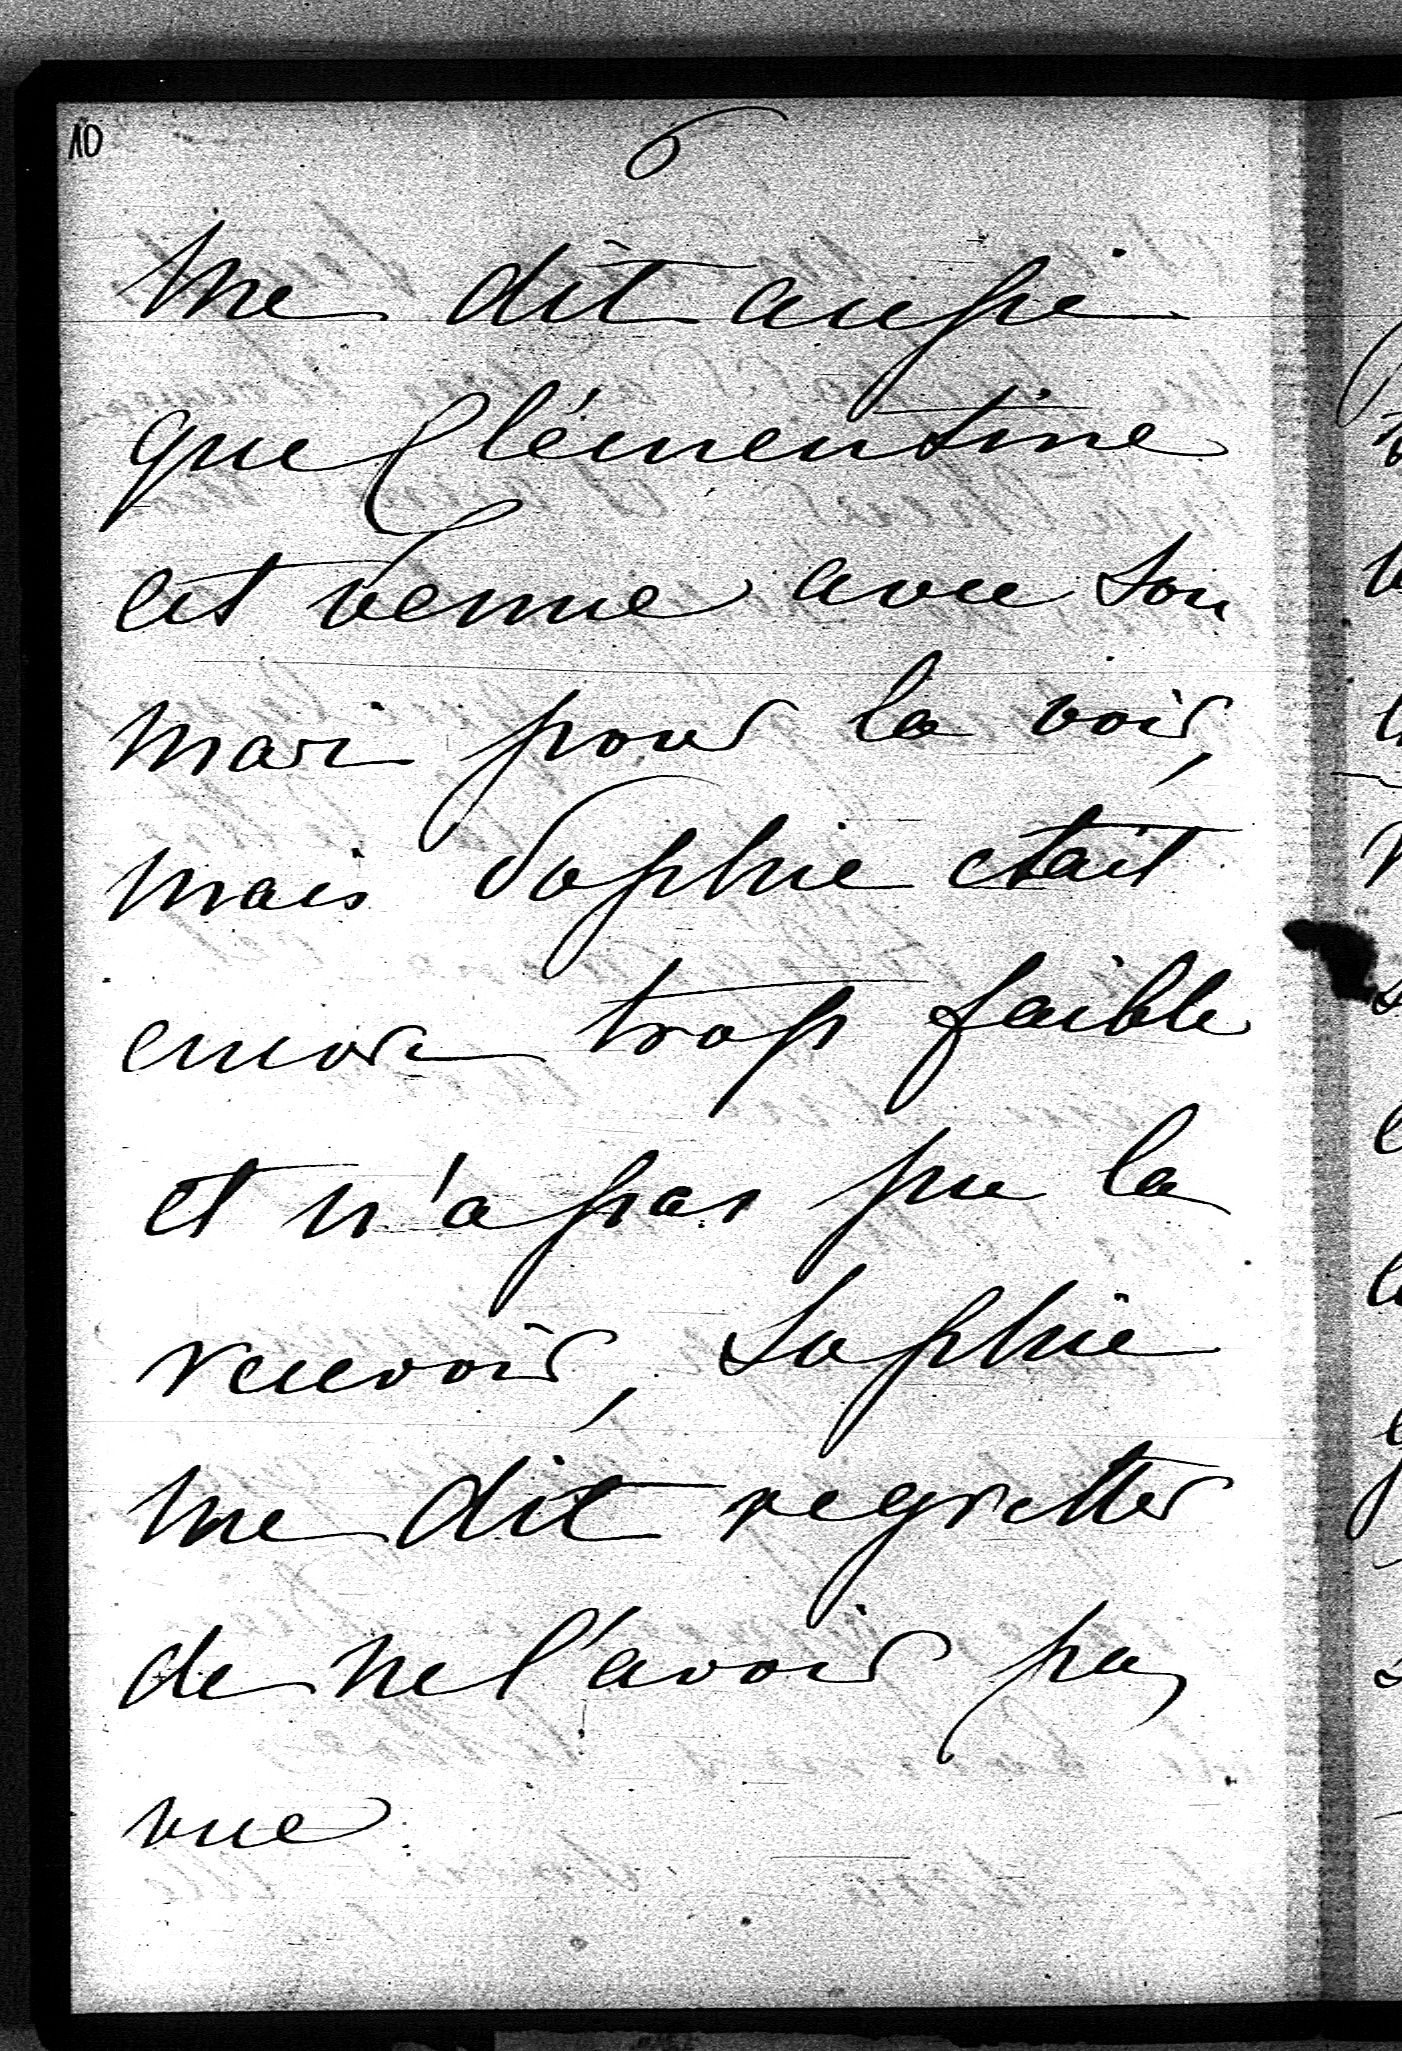 10
6
me dit aussi
que Clémentine
est venue avec son
mari pour la voir,
mais Sophie était
encore trop faible
et n'a pas pu la
recevoir, Sophie
me dit regretter
de ne l'avoir pas
vue.